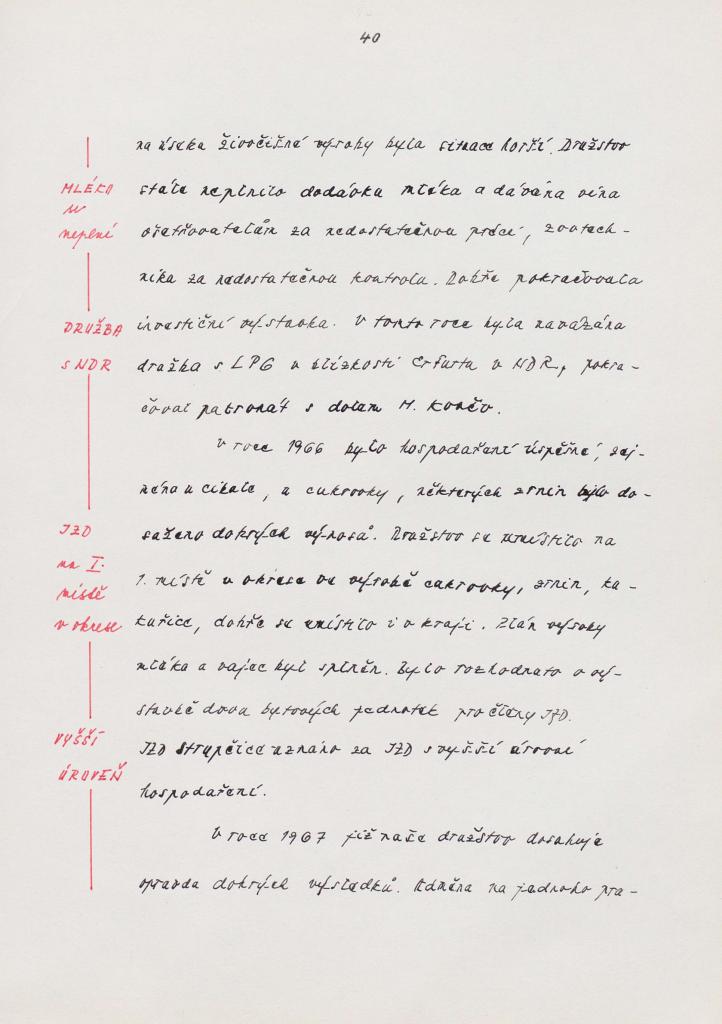 40
na úseku živočišné výroby byla situace horší. Družstvo
MLÉKO
stále neplnilo dodávku mléka a dávána vina
se
neplní
ošetřovatelům za nedostatečnou práci, zootech-
nika za nedostatečnou kontrolu. Dobře pokračovala
DRUŽBA
investiční výstavba. V tomto roce byla navázána
s NDR
družba s LPG v blízkosti Erfurtu v NDR, pokra-
čoval patronát s dolem M. Gorkij.
V roce 1966 bylo hospodaření úspěšné, zej-
ména u cibule, u cukrovky, některých zrnin bylo do-
JZD
saženo dobrých výnosů. Družstvo se umístilo na
na I.
místě
1. místě v okrese ve výrobě cukrovky, zrnin, ku-
v okrese
kuřice, dobře se umístilo i v kraji. Plán výroby
mléka a vajec byl splněn. Bylo rozhodnuto o vý-
stavbě dvou bytových jednotek pro členy JZD.
VYŠŠÍ
JZD Strupčice uznáno za JZD s vyšší úrovní
ÚROVEŇ
hospodaření.
V roce 1967 již naše družstvo dosahuje
opravdu dobrých výsledků. Odměna na jednoho pra-